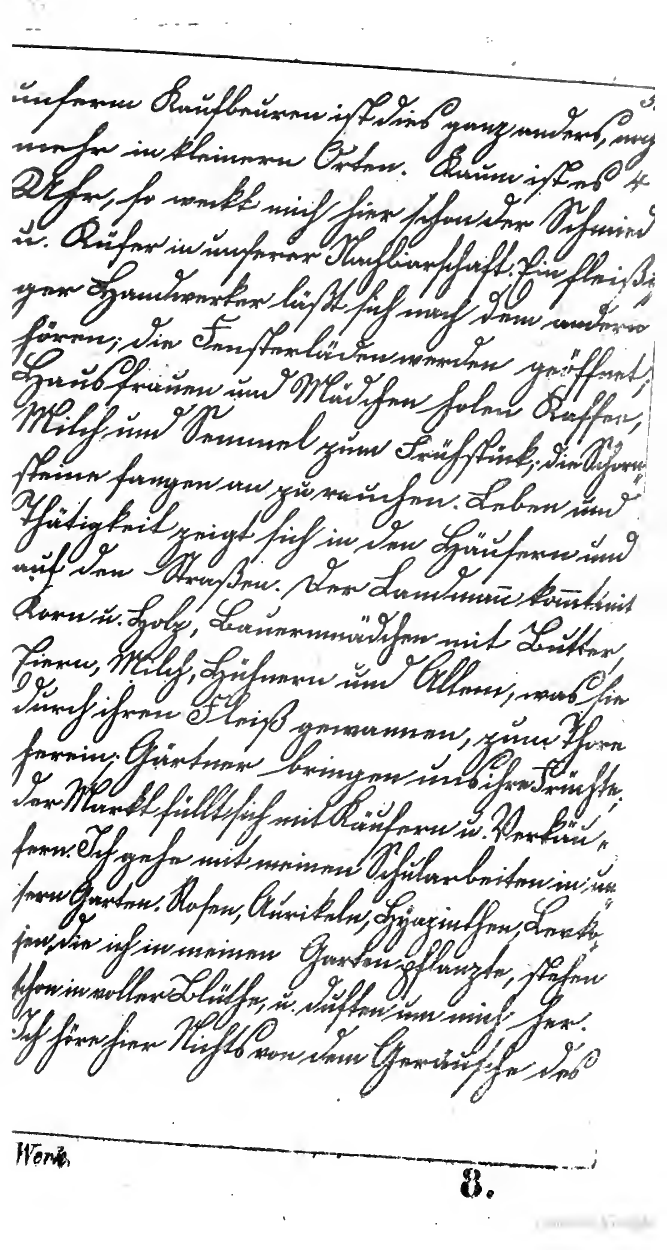 unserm Kaufbeuren ist dies ganz anders, noch
mehr in kleinern Orten. Kaum ist es 4
Uhr, so weckt mich hier schon der Schmied
u. Küfer in unserer Nachbarschaft. Ein fleißi-
ger Handwerker läßt sich nach dem andern
hören; die Fensterläden werden geöffnet;
Hausfrauen und Mädchen holen Kaffee,
Milch und Semmel zum Frühstück; die Schorn-
steine fangen an zu rauchen. Leben und
Thätigkeit zeigt sich in den Häusern und
auf den Straßen. Der Landmann kommt mit
Korn u. Holz, Bauernmädchen mit Butter,
Eiern, Milch, Hühnern und Allem, was sie
durch ihren Fleiß gewannen, zum Thore
herein. Gärtner bringen uns ihre Früchte;
der Markt füllt sich mit Käufern u. Verkäu-
fern. Ich gehe mit meinen Schularbeiten in un-
sern Garten. Rosen, Aurikeln, Hyazinthen, Levko-
jen, die ich in meinen Garten pflanzte, stehen
schon in voller Blüthe, u. duften um mich her.
Ich höre hier Nichts von dem Geräusche des
8.